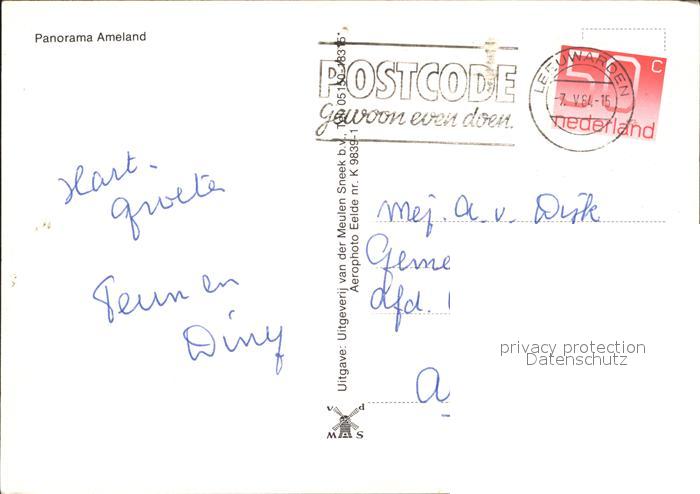 Panorama Ameland
POSTCODE
gewoon even doen.
LEEUWARDEN
-7. V.84-15
50 c
nederland
Hart.
groeten
Teun en
Diny
Uitgave: Uitgeverij van der Meulen Sneek b.v.
Aerophoto Eelde nr. K 9839-1
mej. A. v. Dijk
Geme
Afd.
A
v d
MAS
privacy protection
Datenschutz